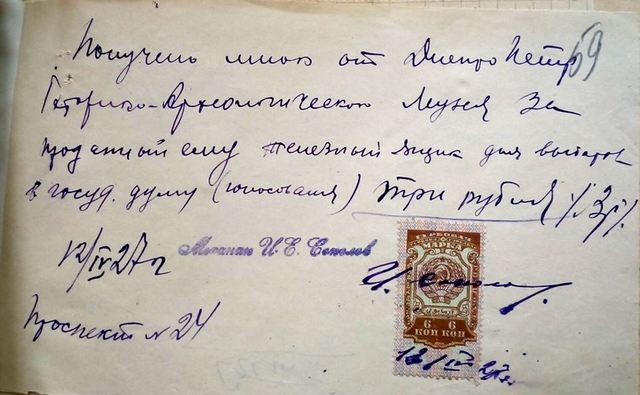 59
Получено мною от ДнепроПетр
Историко-Археологического Музея За
проданный ему железный ящик для выборов
в госуд. думу (голосования) три рубля /3р/.
12/IV 27 г
Механик И. Е. Соколов
МАРКА
6 6
КОП КОП
И. Соколов.
12/IV 27 г.
Проспект № 24